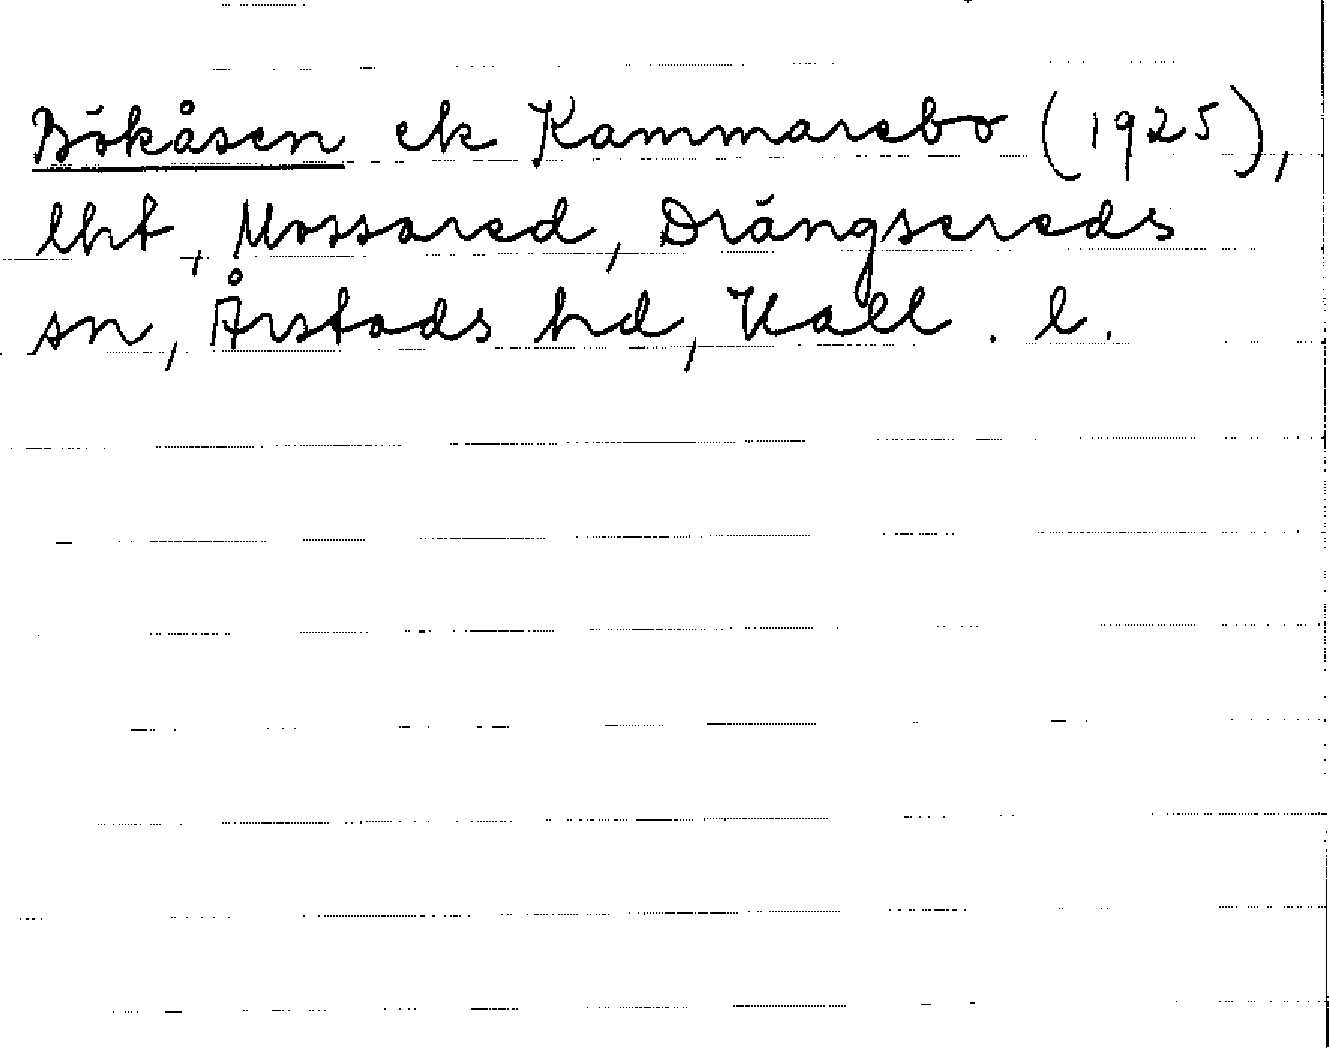 Bökåsen ek Kammarebo (1925),
lht, Mossared, Drängsereds
sn, Årstads hd, Hall. l.